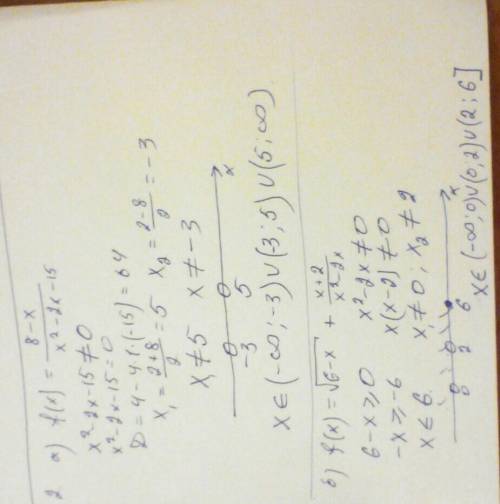 2 а) f(x) = (8-x)/(x²-2x-15)
x²-2x-15≠0
x²-2x-15=0
D=4-4·1·(-15)=64
x₁=(2+8)/2=5 x₂=(2-8)/2=-3
x₁≠5 x≠-3
-3 5 x
x∈(-∞;-3)∪(-3;5)∪(5;∞).
б) f(x)=√(6-x) + (x+2)/(x²-2x)
6-x≥0 x²-2x≠0
-x≥-6 x(x-2)≠0
x≤6. x₁≠0; x₂≠2
0 2 6 x
x∈(-∞;0)∪(0;2)∪(2;6]